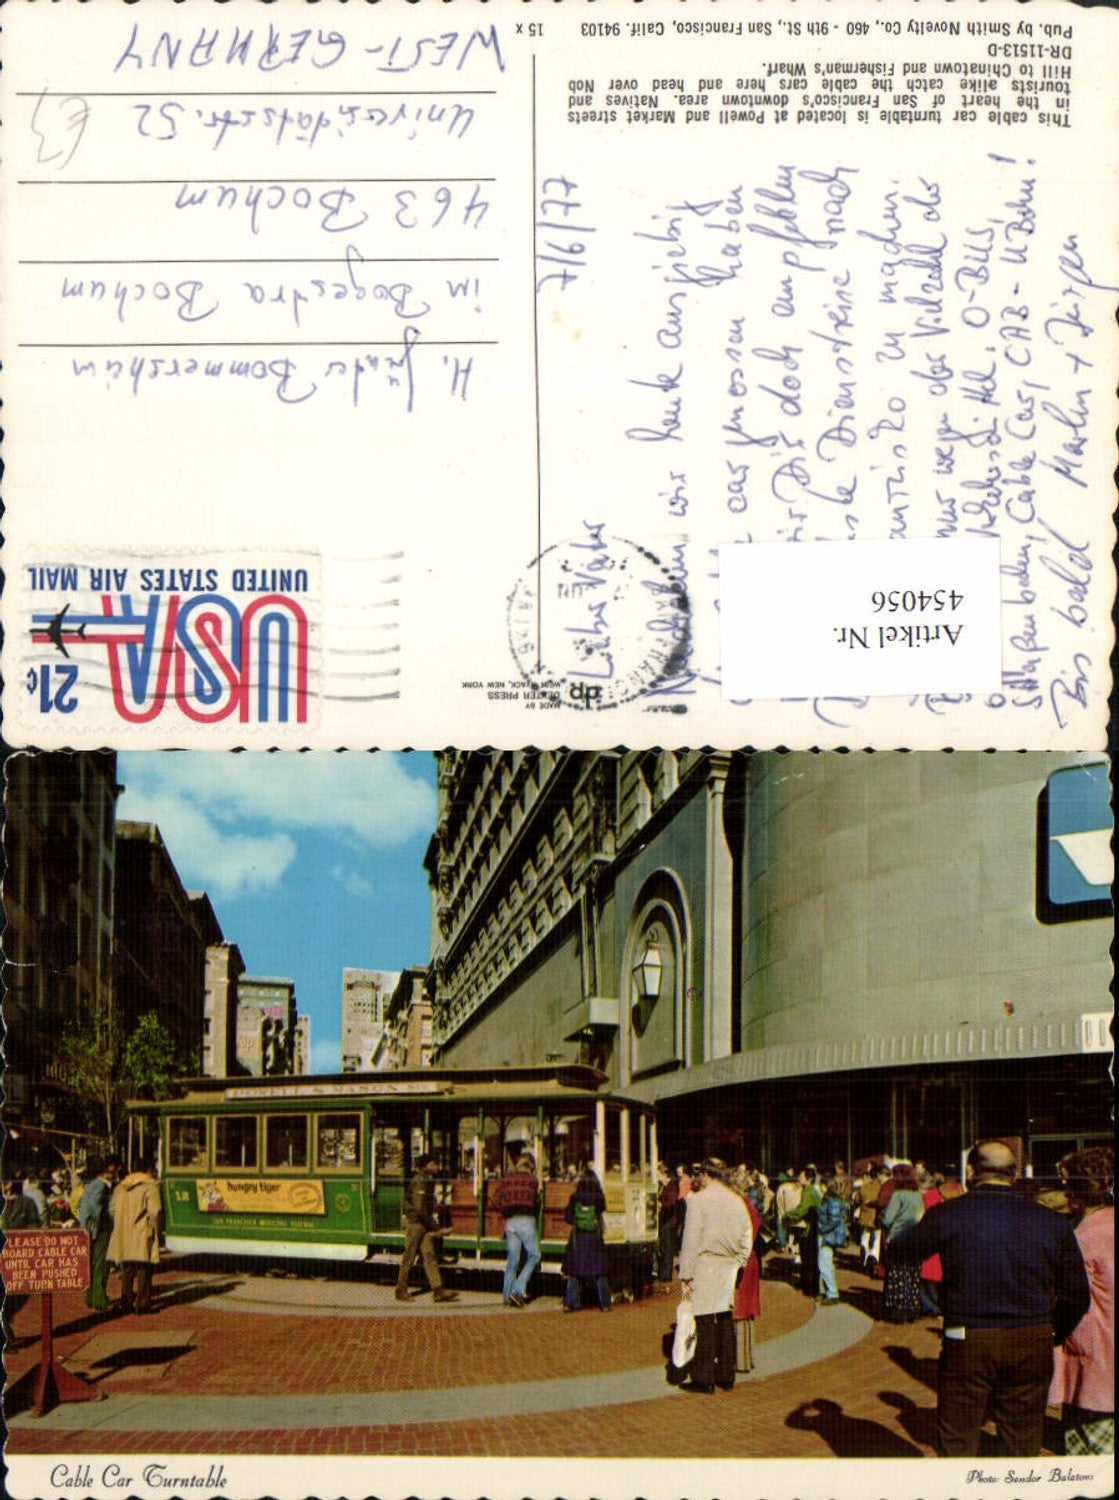 This cable car turntable is located at Powell and Market streets
in the heart of San Francisco's downtown area. Natives and
tourists alike catch the cable cars here and head over Nob
Hill to Chinatown and Fisherman's Wharf.
DR-11513-D
Pub. by Smith Novelty Co., 460 - 9th St., San Francisco, Calif. 94103
15 x
dp
MADE BY
DEXTER PRESS
WEST NYACK, NEW YORK
21¢
USA
UNITED STATES AIR MAIL
7/6/77
Lieber Vater
Nachdem wir heute ausgiebig
car genossen haben
Dir doch empfehlen
Dienstreise nach
zu machen.
wegen der Vielzahl der
O-BUS,
Straßenbahn, Cable Car, CAB - U Bahn!
Bis bald Marlen + Jürgen
H. Günter Bommersheim
im Bogestra Bochum
463 Bochum
Universitätsstr. 52
WEST-GERMANY
Artikel Nr.
454056
POWELL & MASON STS
12
hungry tiger
SAN FRANCISCO MUNICIPAL RAILWAY
PLEASE DO NOT
BOARD CABLE CAR
UNTIL CAR HAS
BEEN PUSHED
OFF TURN TABLE
Cable Car Turntable
Photo: Sandor Balatoni